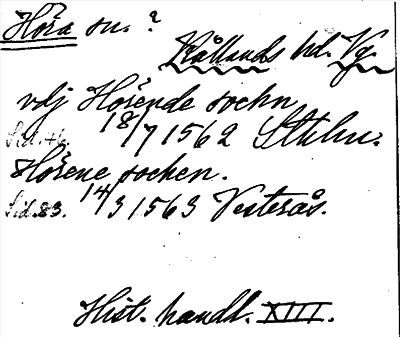 Höra sn. ?
Kållands hd. Vg.
vdj Hörende sochn
Sid. 46. 18/7 1562 Sthlm.
Hörene socken.
Sid. 83. 14/3 1563 Vesterås.
Hist. handl. XIII.